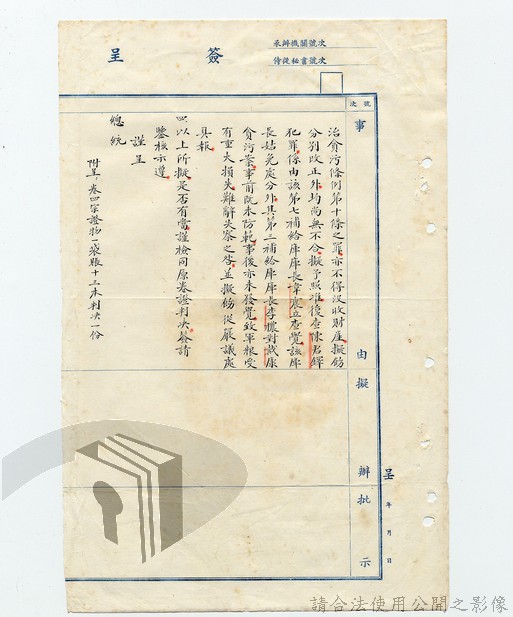 簽呈
承辦機關號次
侍從秘書號次
號次
事由擬辦批示
呈年月日
治貪污條例第十條之罪亦不得沒收財產擬飭
分別改正外均尚無不合擬予照准後查陳君鐸
犯罪係由該第七補給庫庫長韋震立查覺該庫
長姑免處分外其第三補給庫庫長李 對戴康
貪污案事前既未防範事後亦未發覺致軍糧受
有重大損失難辭失察之咎並擬飭從嚴議處
具報
四、以上所擬是否有當謹檢同原卷證判決簽請
鑒核示遵
謹呈
總統
附呈：卷四宗證物一袋賬十三本判決一份
請合法使用公開之影像